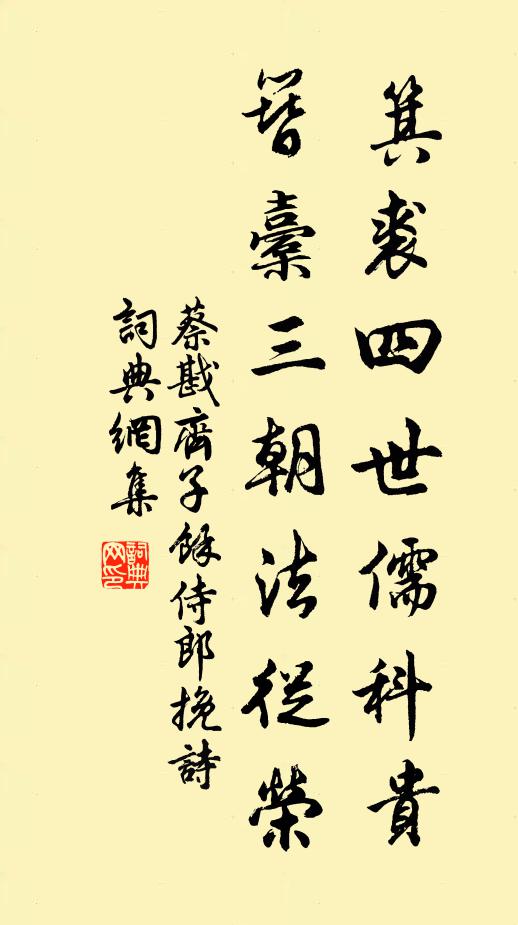 箕裘四世儒科貴
簪橐三朝法從榮
蔡戡齊子餘侍郎挽詩
詞典網集
詞典网印